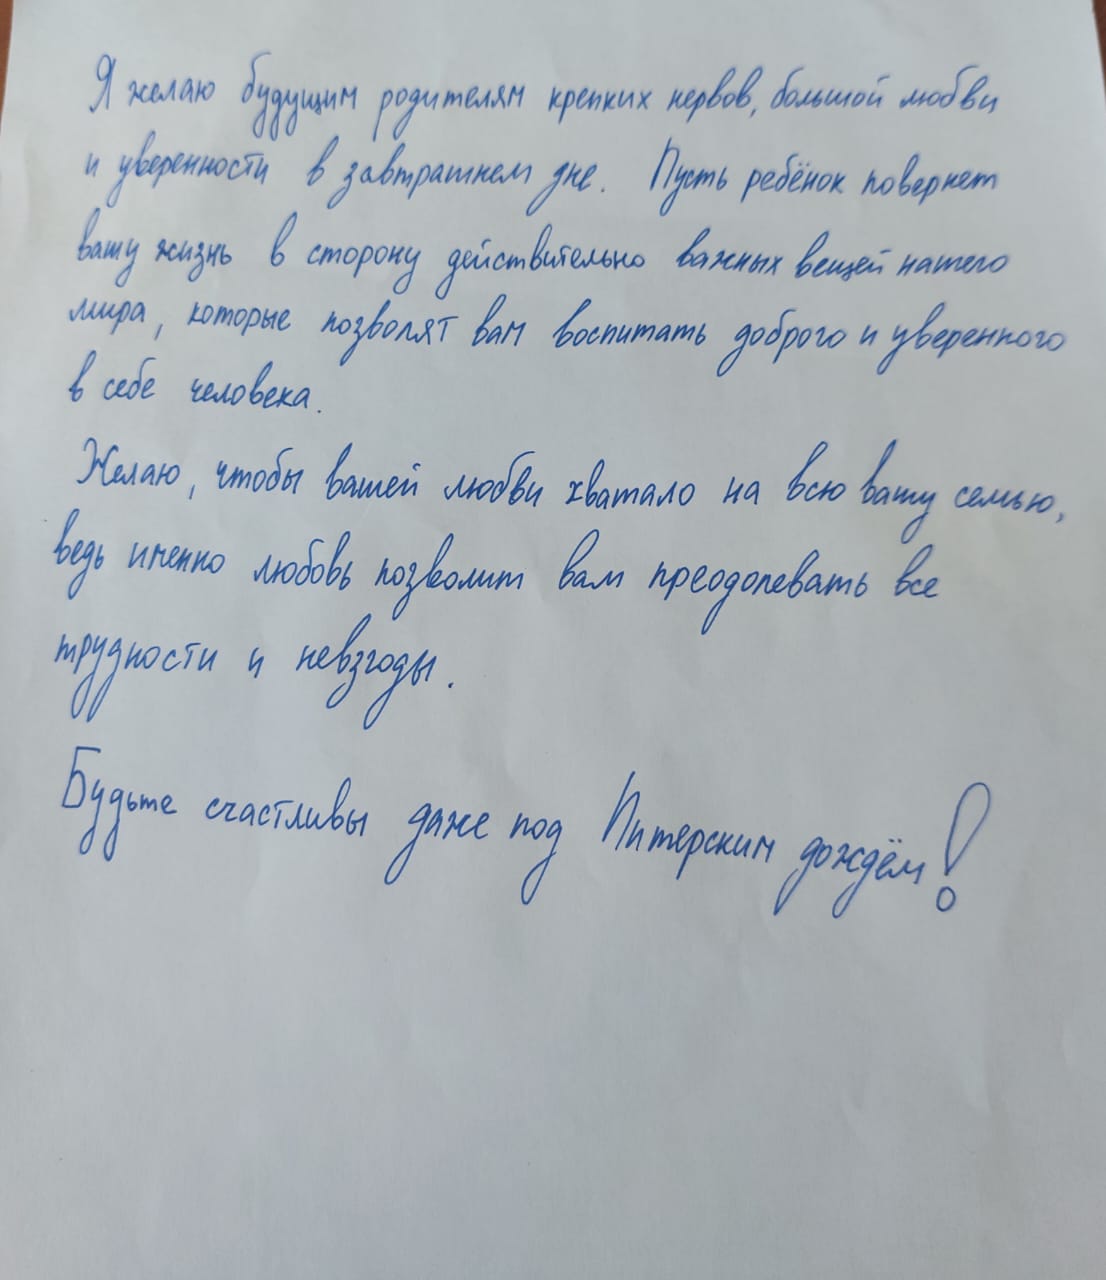 Я желаю будущим родителям крепких нервов, большой любви
и уверенности в завтрашнем дне. Пусть ребёнок повернет
вашу жизнь в сторону действительно важных вещей нашего
мира, которые позволят вам воспитать доброго и уверенного
в себе человека.
Желаю, чтобы вашей любви хватало на всю вашу семью,
ведь именно любовь позволит вам преодолевать все
трудности и невзгоды.
Будьте счастливы даже под Питерским дождём!